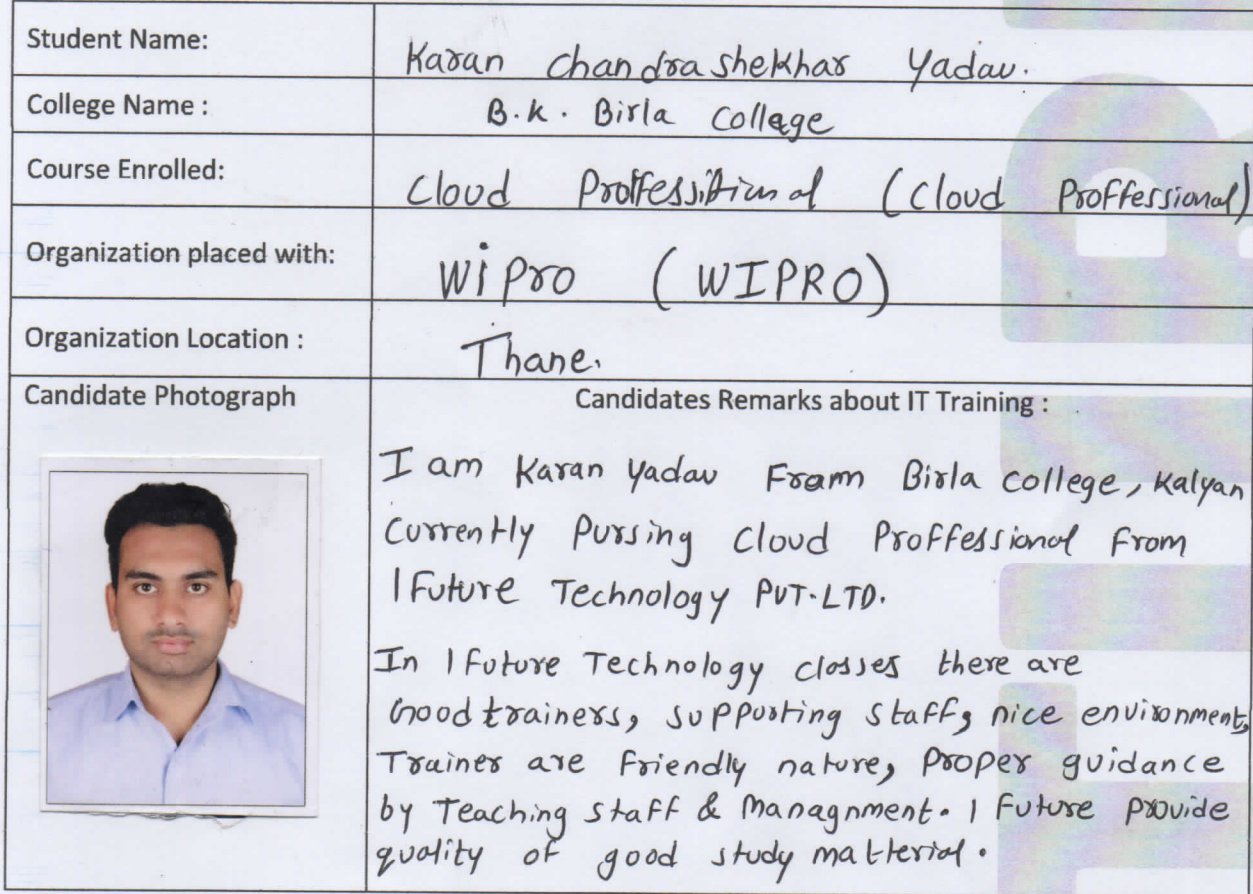 Student Name:
Karan Chandrashekhar Yadav.
College Name :
B.K. Birla College
Course Enrolled:
Cloud Proffessitional (Cloud Proffessional)
Organization placed with:
Wipro (WIPRO)
Organization Location :
Thane.
Candidate Photograph
Candidates Remarks about IT Training :
I am Karan Yadav From Birla College, Kalyan
Currently Pursing Cloud Proffessional From
1Future Technology PVT.LTD.
In 1Future Technology classes there are
Good trainers, supporting staff, nice environment,
Trainer are friendly nature, Proper guidance
by Teaching staff & Managnment. 1 Future provide
quality of good study matterial.